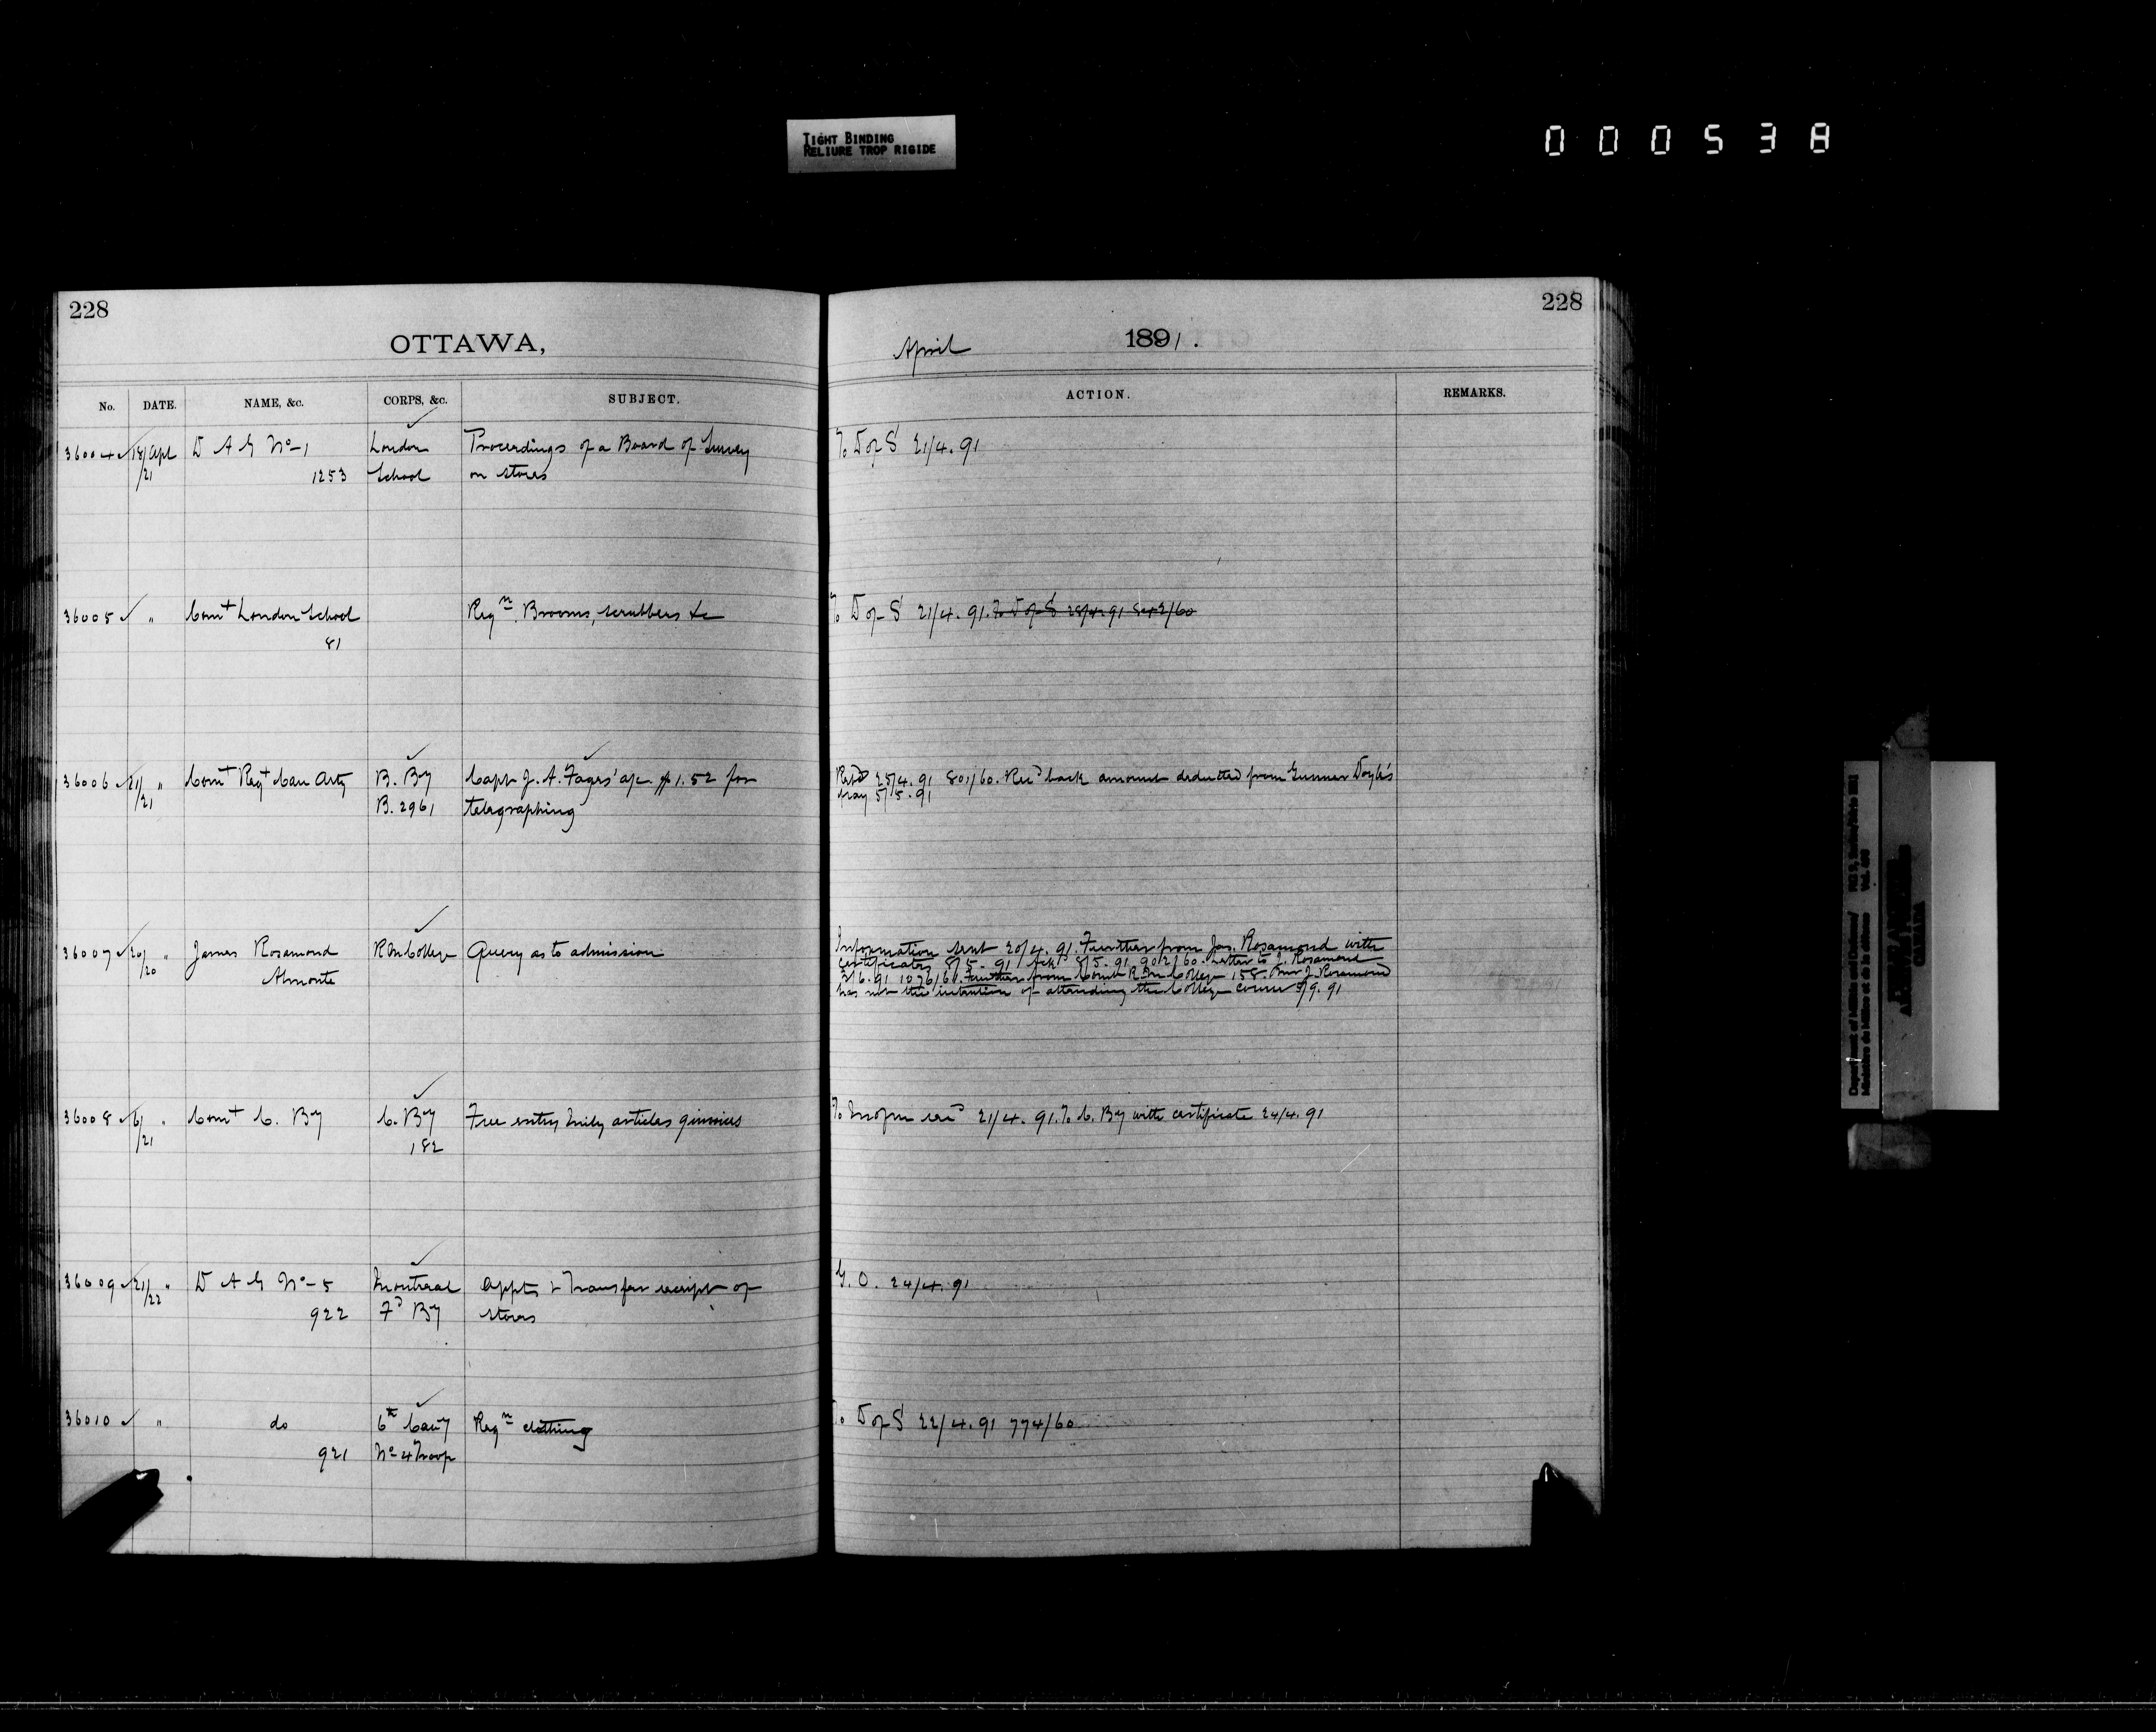 TIGHT BINDING
RELIURE TROP RIGIDE
000538
228
OTTAWA,
No. DATE. NAME, &c. CORPS, &c. SUBJECT.
36004 18/21 Apl D A G No-1 London Proceedings of a Board of Survey
1253 School on stores
36005 " Comt London School Reqn Brooms, scrubbers &c
81
36006 21/21 " Comt Regt Can Arty B. By Capt J. A. Fages' a/c $1.52 for
B. 2961 telegraphing
36007 20/20 " James Rosamond R M College Query as to admission
Almonte
36008 6/21 " Comt C. By C. By Free entry Mily articles
182
36009 21/22 " D A G No-5 Montreal Appts & Transfer receipt of
922 Fd By stores
36010 " do 6th Cavy Reqn clothing
921 No-4 Troop
228
April 1891.
ACTION. REMARKS.
To D of S 21/4.91
To D of S 21/4.91. To D of S 28/4.91 842/60
Retd 25/4.91 801/60. Recd back amount deducted from Gunner Doyle's
pay 5/5.91
Information sent 20/4.91. Further from Jas. Rosamond with
certificates 8/5.91 Ackd 8/5.91 902/60. Letter to J. Rosamond
2/6.91 1076/60. Further from Comt R M College 158. J. Rosamond
has not the intention of attending the College course 5/9.91
21/4.91. To C. By with certificate 24/4.91
G. O. 24/4.91
To D of S 22/4.91 774/60
Department of Militia and Defence/
Ministère de la Milice et de la défense